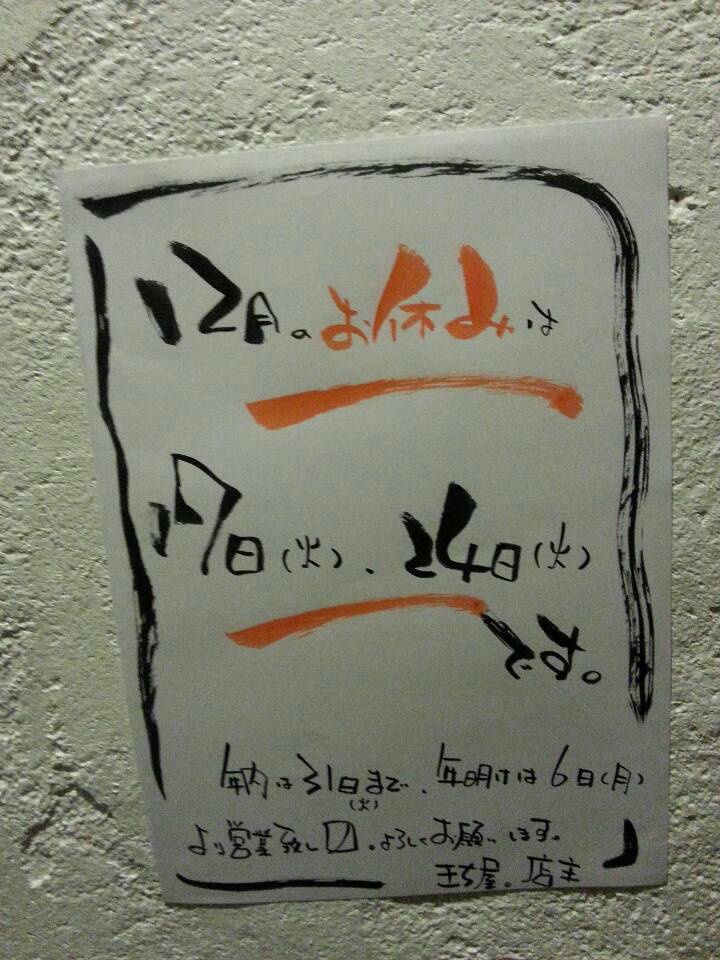 12月のお休みは
17日(火)、24日(火)
です。
年内は31日まで、年明けは6日(月)
(火)
より営業致し〼。よろしくお願いします。
店主